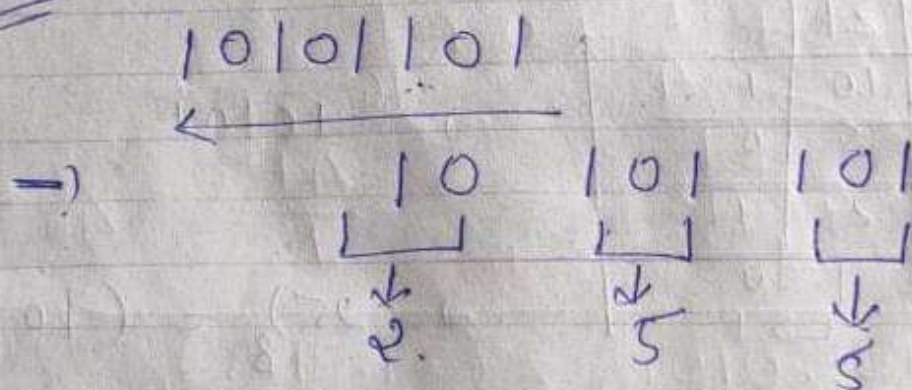 10101101
10 101 101
2. 5